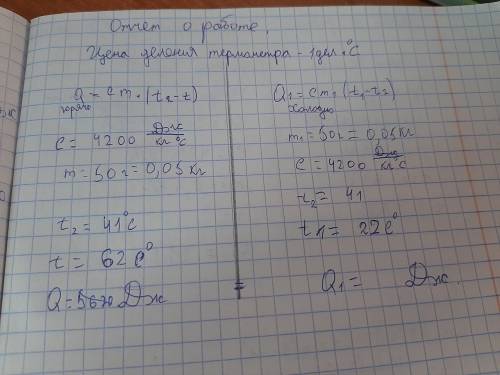 Отчет о работе.
Цена деления термометра - 1 дел. °C
Q = cm · (t₂ - t)
горячо
c = 4200 Дж/кг°C
m = 50 г = 0,05 кг
t₂ = 41°C
t = 62 C°
Q = Дж
Q₁ = cm₁ (t₁ - t₂)
Холодно
m₁ = 50 г = 0,05 кг
c = 4200 Дж/кг°C
t₂ = 41
t1 = 22 C°
Q₁ = Дж